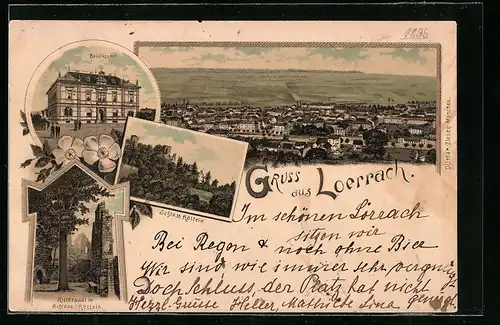 1896
Bezirksamt
Ottmar Zieher, München.
Schloss Rötteln
Gruss aus Loerrach.
Rittersaal in
Schloss Rötteln
Im schönen Lörrach
sitzen wir
Bei Regen & noch ohne Bier
Wir sind wie immer sehr vergnügt
Doch Schluss, der Platz hat nicht genügt.
Herzl. Grüsse Heller, Mathilde Lina